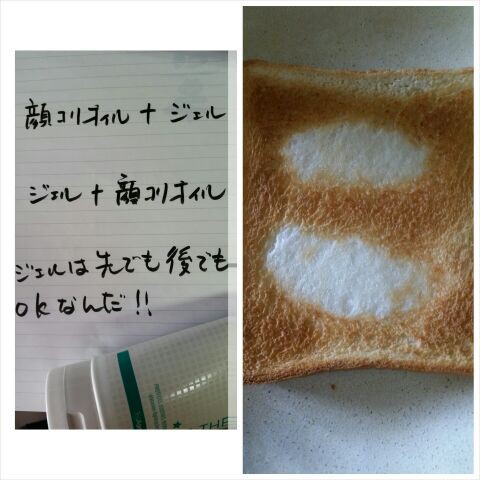 顔コリオイル + ジェル
ジェル + 顔コリオイル
ジェルは先でも後でも
okなんだ!!
THE